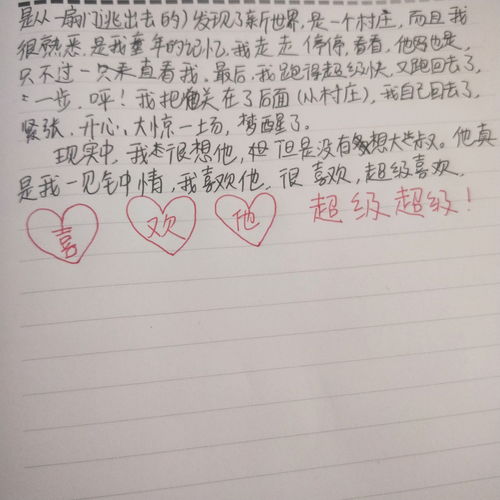 是从一扇门逃出去的)发现了新世界,是一个村庄,而且我
很熟悉,是我童年的记忆,我走走停停,看看,他妈也是,
只不过一只来直看我.最后,我跑得超级快,又跑回去了,
一步,呯!我把关在了后面(从村庄),我自己回去了,
紧张、开心、大惊一场,梦醒了。
现实中,我很想他,但是没有想大叔。他真
是我一见钟情,我喜欢他,很喜欢,超级喜欢.
喜 欢 他 超级超级!